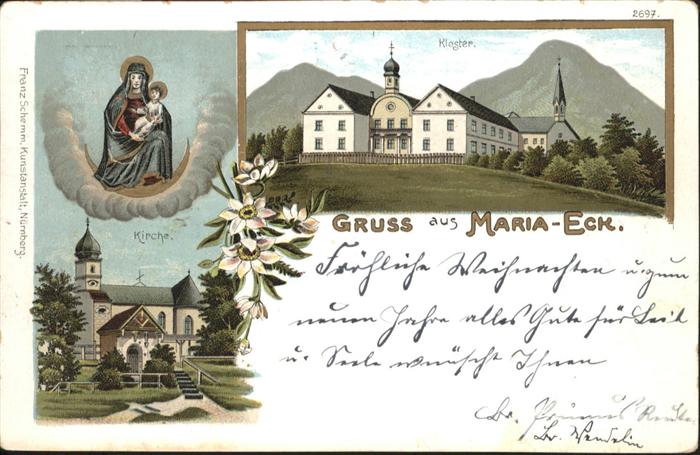 2697.
Kloster.
Franz Schemm, Kunstanstalt, Nürnberg.
Kirche.
GRUSS aus MARIA-ECK.
Fröhliche Weihnachten u. zum
neuen Jahre alles Gute für Leib
u. Seele wünscht Ihnen
Br.
Br. Wendelin